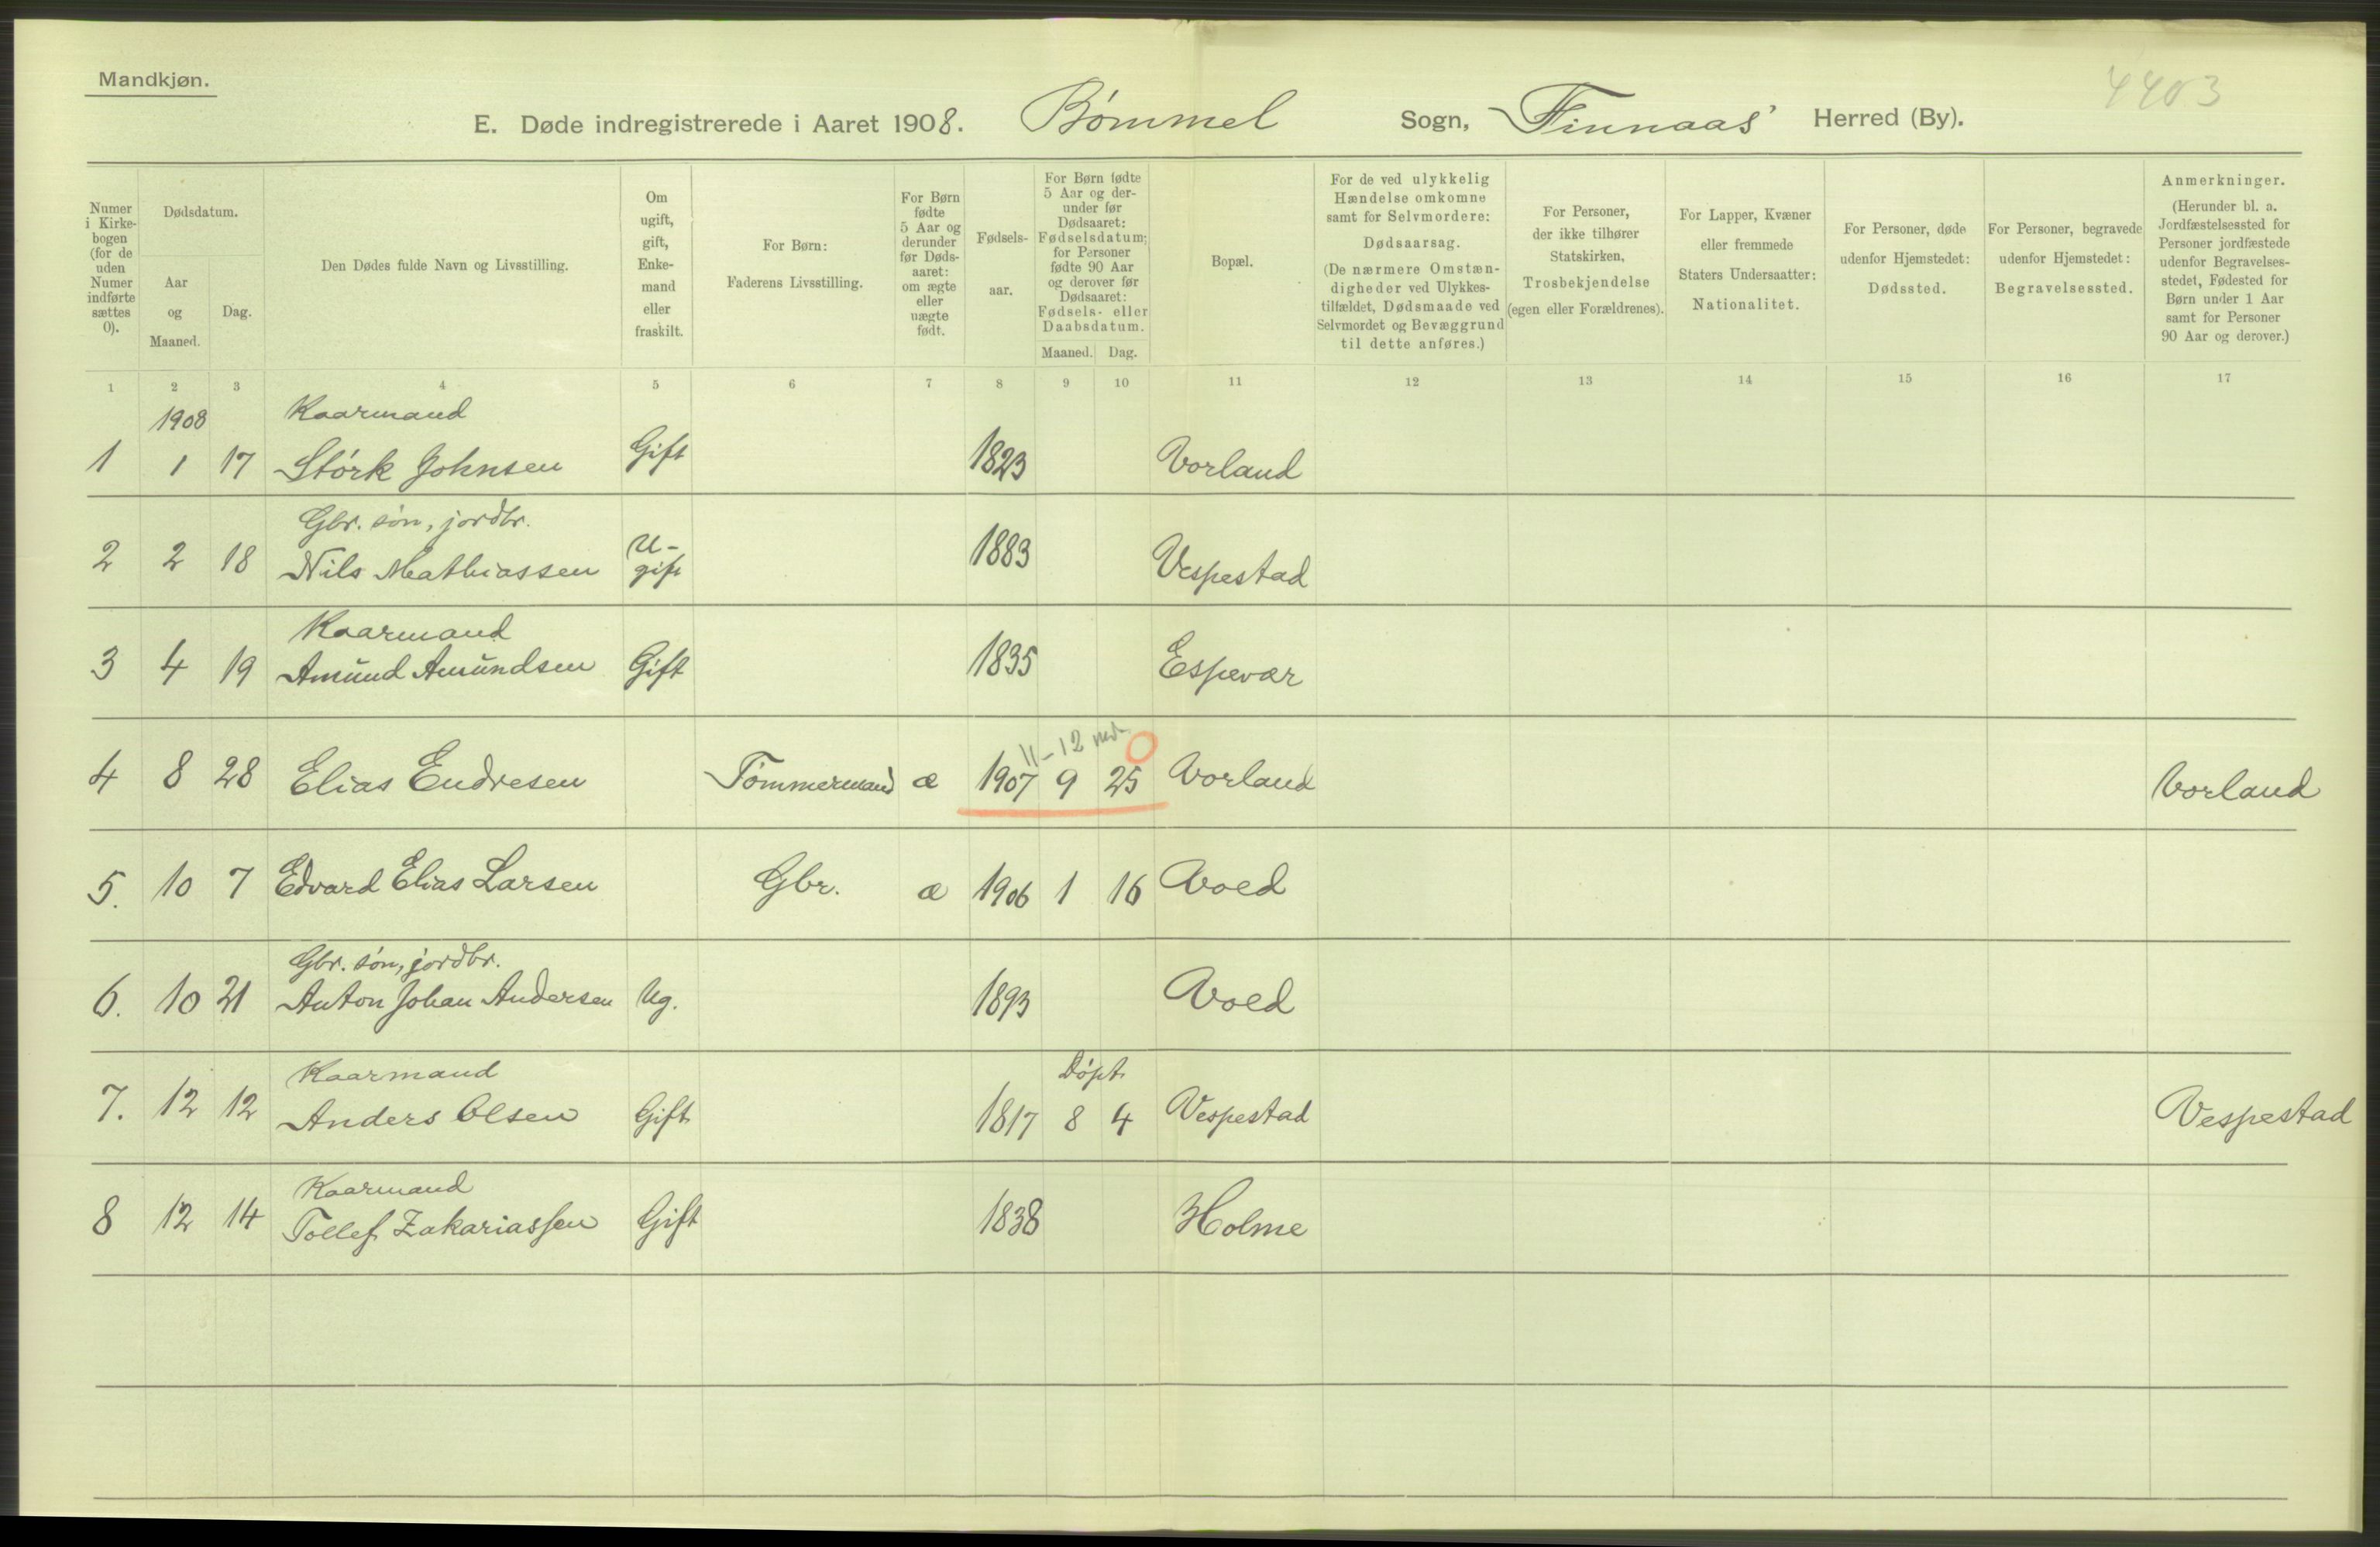 Mandkjøn.
4403
E. Døde indregistrerede i Aaret 1908. Bømmel Sogn, Finnaas Herred (By).
Numer i Kirke- bogen (for de uden Numer indførte sættes 0).
Dødsdatum.
Aar og Maaned.
Dag.
Den Dødes fulde Navn og Livsstilling.
Om ugift, gift, Enke- mand eller fraskilt.
For Børn: Faderens Livsstilling.
For Børn fødte 5 Aar og derunder før Døds- aaret: om ægte eller uægte født.
Fødsels- aar.
For Børn fødte 5 Aar og der- under før Dødsaaret: Fødselsdatum; for Personer fødte 90 Aar og derover før Dødsaaret: Fødsels- eller Daabsdatum.
Maaned. Dag.
Bopæl.
For de ved ulykkelig Hændelse omkomne samt for Selvmordere: Dødsaarsag. (De nærmere Omstæn- digheder ved Ulykkes- tilfældet, Dødsmaade ved Selvmordet og Bevæggrund til dette anføres.)
For Personer, der ikke tilhører Statskirken, Trosbekjendelse (egen eller Forældrenes).
For Lapper, Kvæner eller fremmede Staters Undersaatter: Nationalitet.
For Personer, døde udenfor Hjemstedet: Dødssted.
For Personer, begravede udenfor Hjemstedet: Begravelsessted.
Anmerkninger. (Herunder bl. a. Jordfæstelsessted for Personer jordfæstede udenfor Begravelses- stedet, Fødested for Børn under 1 Aar samt for Personer 90 Aar og derover.)
1 2 3 4 5 6 7 8 9 10 11 12 13 14 15 16 17
1908 Kaarmand
1 1 17 Størk Johnsen Gift 1823 Vorland
Gbr. søn, jordbr.
2 2 18 Nils Mathiassen U- gift 1883 Vespestad
Kaarmand
3 4 19 Amund Amundsen Gift 1835 Espevær
11-12 md.
4 8 28 Elias Endresen Tømmermand æ 1907 9 25 Vorland Vorland
5. 10 7 Edvard Elias Larsen Gbr. æ 1906 1 16 Vold
Gbr. søn, jordbr.
6. 10 21 Anton Johan Andersen Ug. 1893 Vold
Kaarmand Døpt
7. 12 12 Anders Olsen Gift 1817 8 4 Vespestad Vespestad
Kaarmand
8 12 14 Tollef Zakariassen Gift 1838 Holme